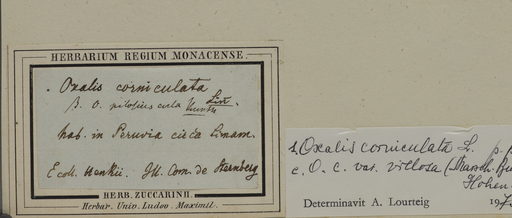 HERBARIUM REGIUM MONACENSE.
Oxalis corniculata
Lin.
β. O. pilosiuscula Kunth
hab. in Peruvia circa Limam.
E coll. Henkii. Ill. Com. de Sternberg
HERB. ZUCCARINII.
Herbar. Univ. Ludov. Maximil.
Oxalis corniculata L. p. p.
c. O. c. var. villosa
Hohen
Determinavit A. Lourteig 197